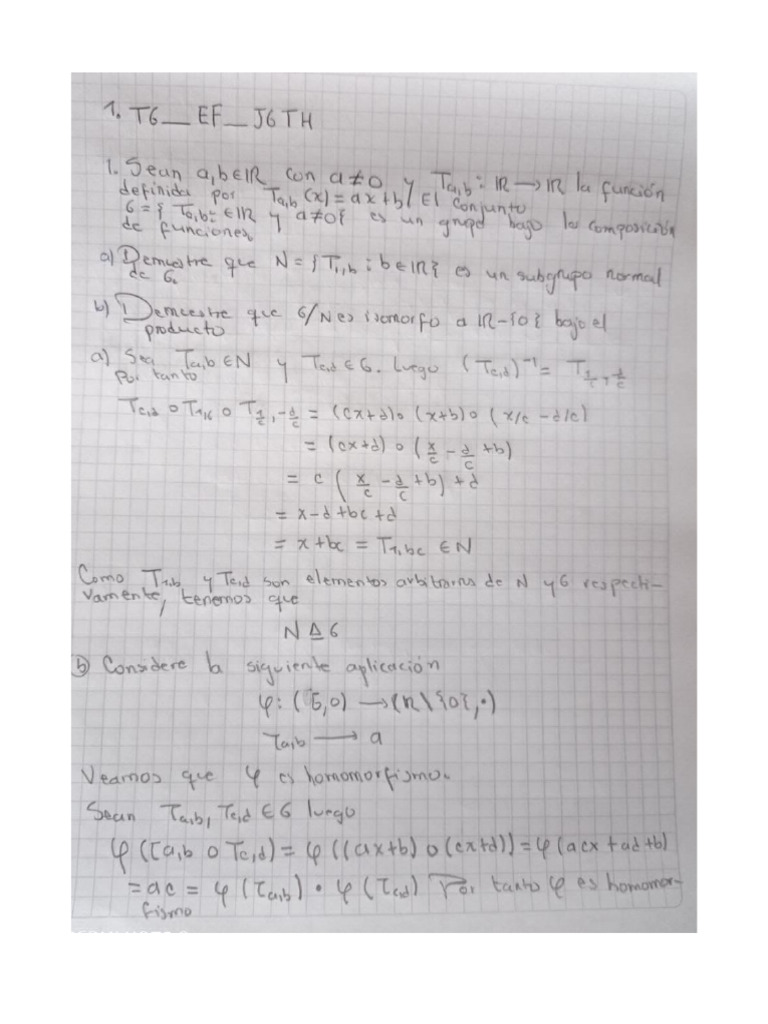 1. T6__EF__J6TH
1. Sean a,b∈ℝ con a≠0 y Ta,b: ℝ→ℝ la función
definida por Ta,b (x) = ax+b/ El conjunto
G = { Ta,b: ∈ℝ y a≠0} es un grupo bajo la composición
de funciones.
a) Demuestre que N = {T1,b : b∈ℝ} es un subgrupo normal
de G.
b) Demuestre que G/N es isomorfo a ℝ-{0} bajo el
producto
a) Sea Ta,b ∈ N y Tc,d ∈ G. Luego (Tc,d)⁻¹ = T1/c, d/c
Por tanto
Tc,d ∘ T1,b ∘ T1/c, -d/c = (cx+d)∘ (x+b)∘ (x/c -d/c)
= (cx+d) ∘ (x/c - d/c +b)
= c ( x/c - d/c +b) +d
= x-d+bc+d
= x+bc = T1,bc ∈ N
Como T1,b y Tc,d son elementos arbitrarios de N y G respecti-
vamente, tenemos que
N Δ G
b) Considere la siguiente aplicación
φ: (G,0) → (ℝ\{0},·)
Ta,b → a
Veamos que φ es homomorfismo.
Sean Ta,b, Tc,d ∈ G luego
φ (Ta,b ∘ Tc,d) = φ ((ax+b) ∘ (cx+d)) = φ (acx + ad+b)
= ac = φ (Ta,b) · φ (Tc,d) Por tanto φ es homomor-
fismo